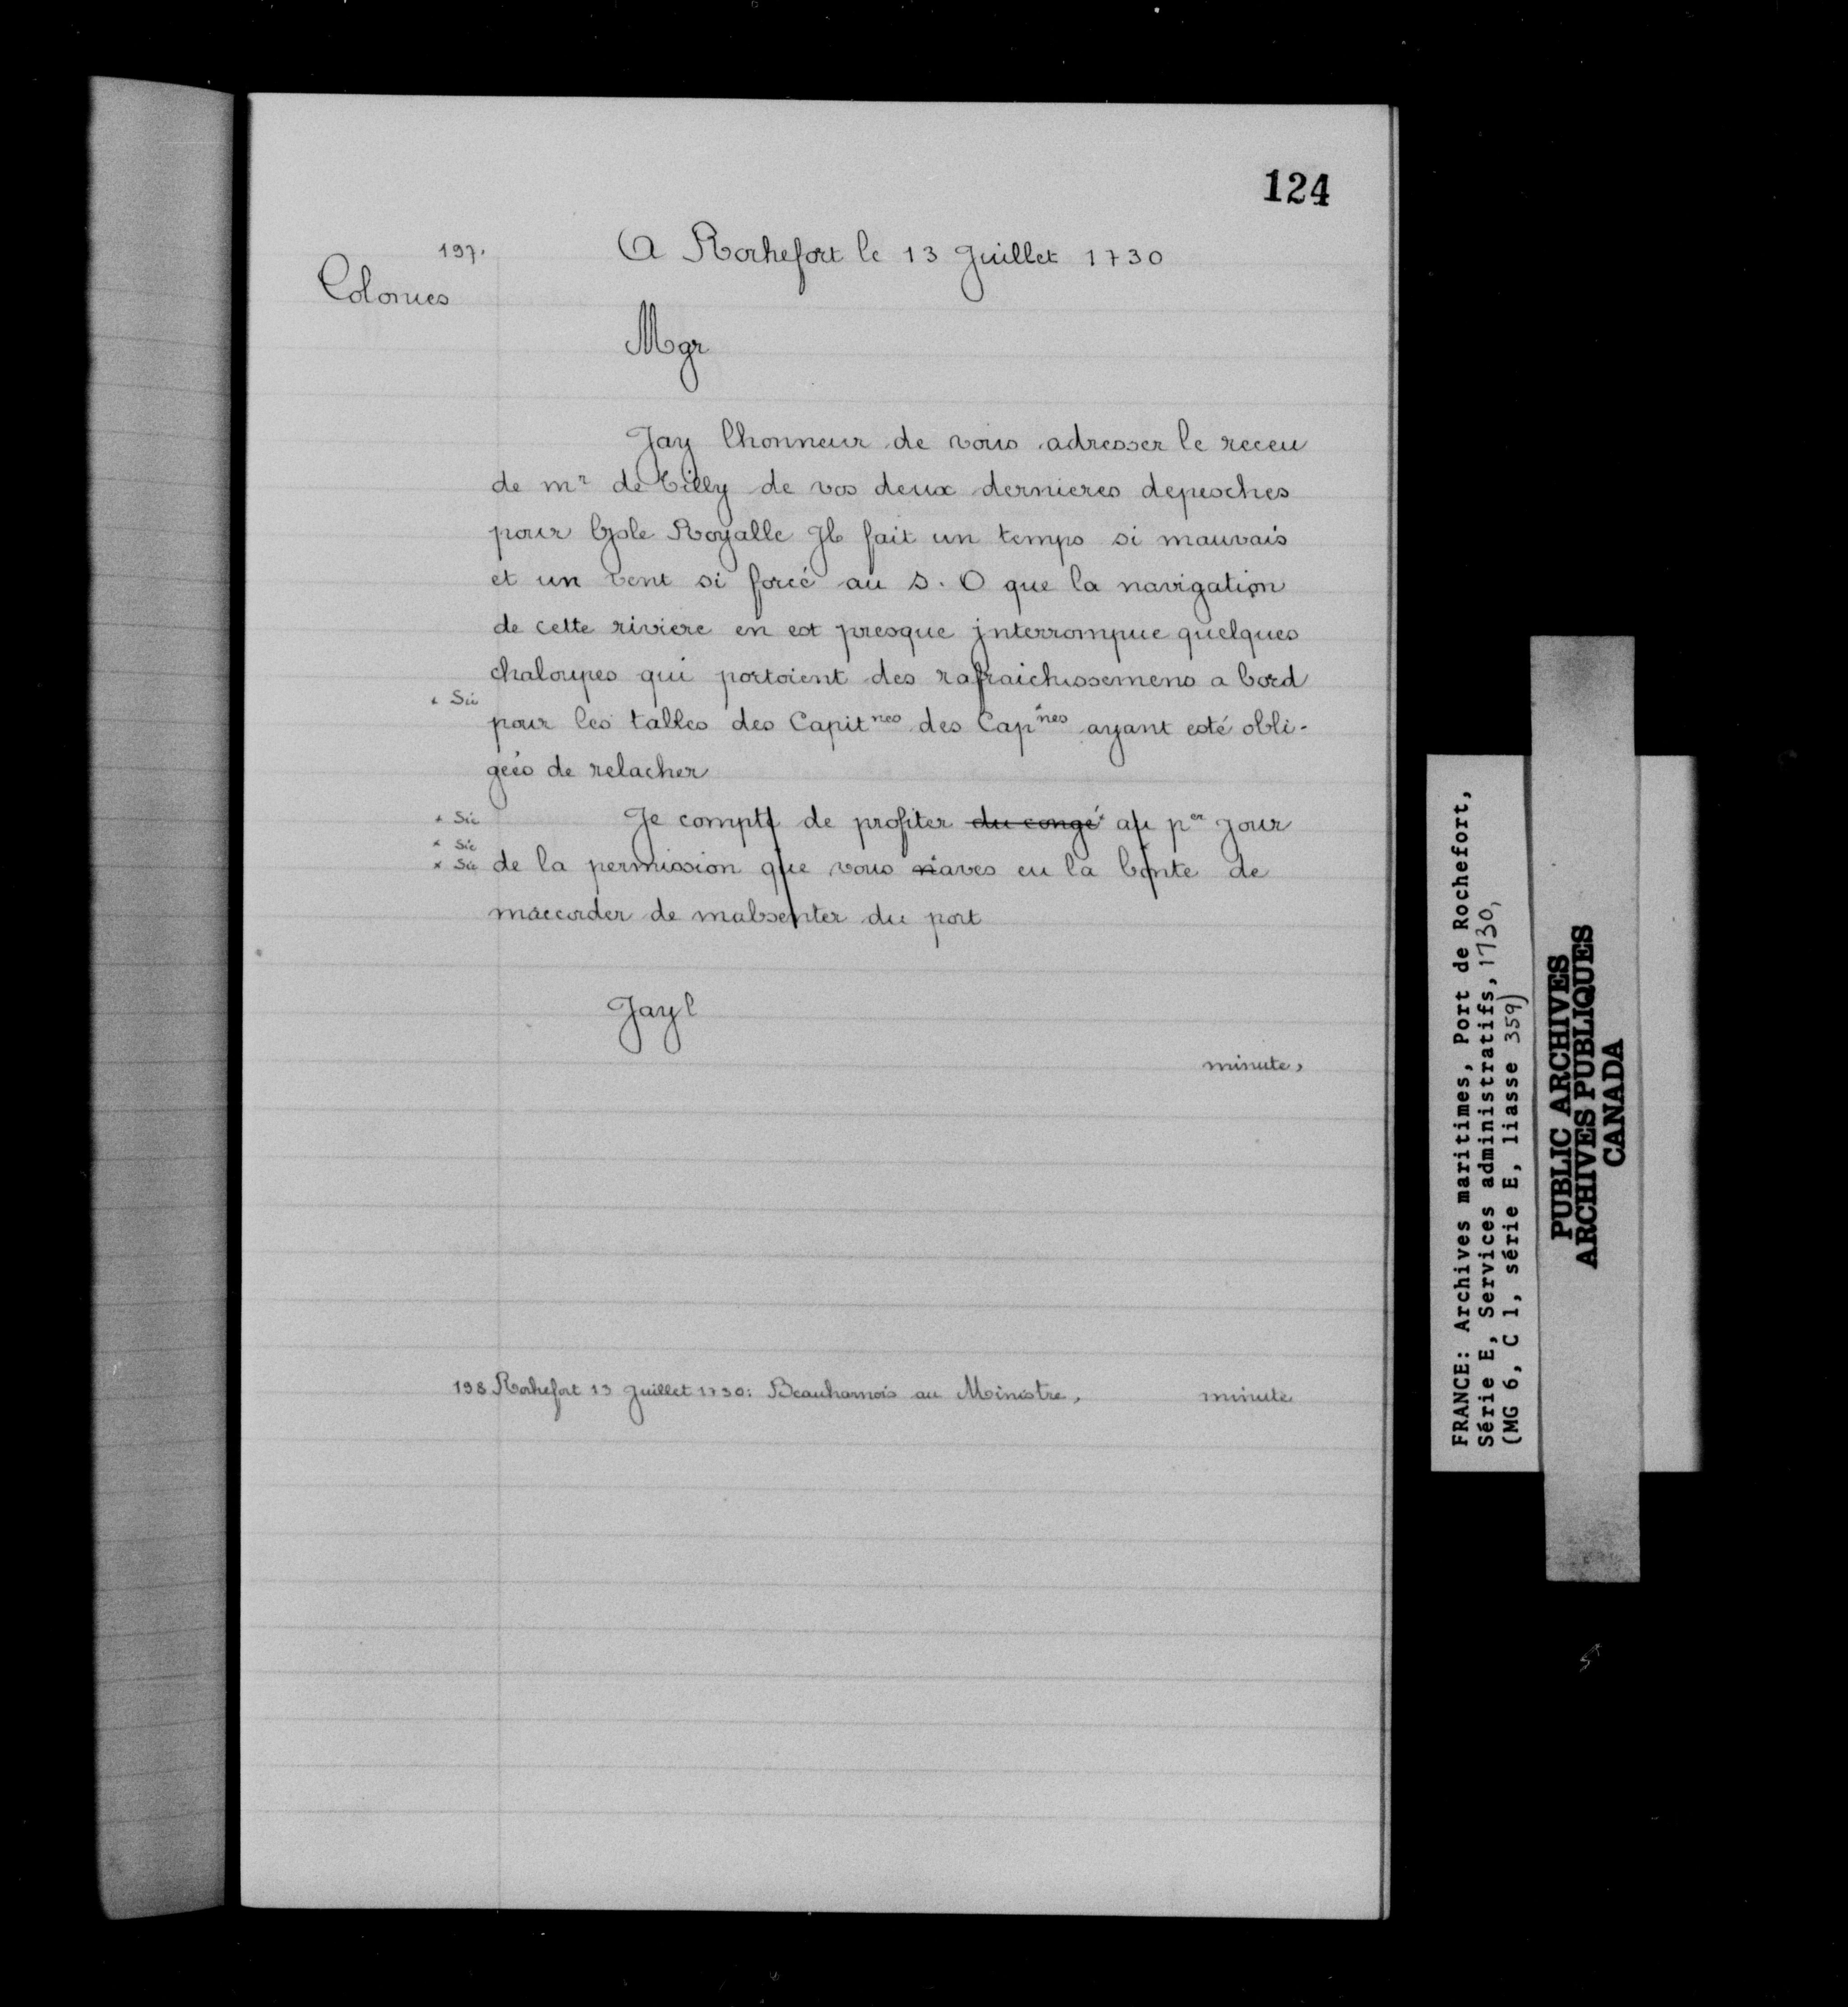 124
197.
A Rochefort le 13 Juillet 1730
Colonies
Mgr
Jay lhonneur de vous adresser le receu
de mr de Tilly de vos deux dernieres depesches
pour lysle Royalle Jl fait un temps si mauvais
et un vent si forcé au S. O que la navigation
de cette riviere en est presque jnterrompue quelques
chaloupes qui portoient des rafraichissemens a bord
x Sic
pour les tables des Capitnes des Capnes ayant esté obli-
gées de relacher
x Sic
Je compte de profiter du congé x au per jour
x Sic
x Sic
de la permission que vous n'aves eu la bonte de
maccorder de mabsenter du port
Jay l
minute,
198 Rochefort 13 Juillet 1730: Beauharnois au Ministre,
minute
FRANCE: Archives maritimes, Port de Rochefort,
Série E, Services administratifs, 1730,
(MG 6, C 1, série E, liasse 359)
PUBLIC ARCHIVES
ARCHIVES PUBLIQUES
CANADA